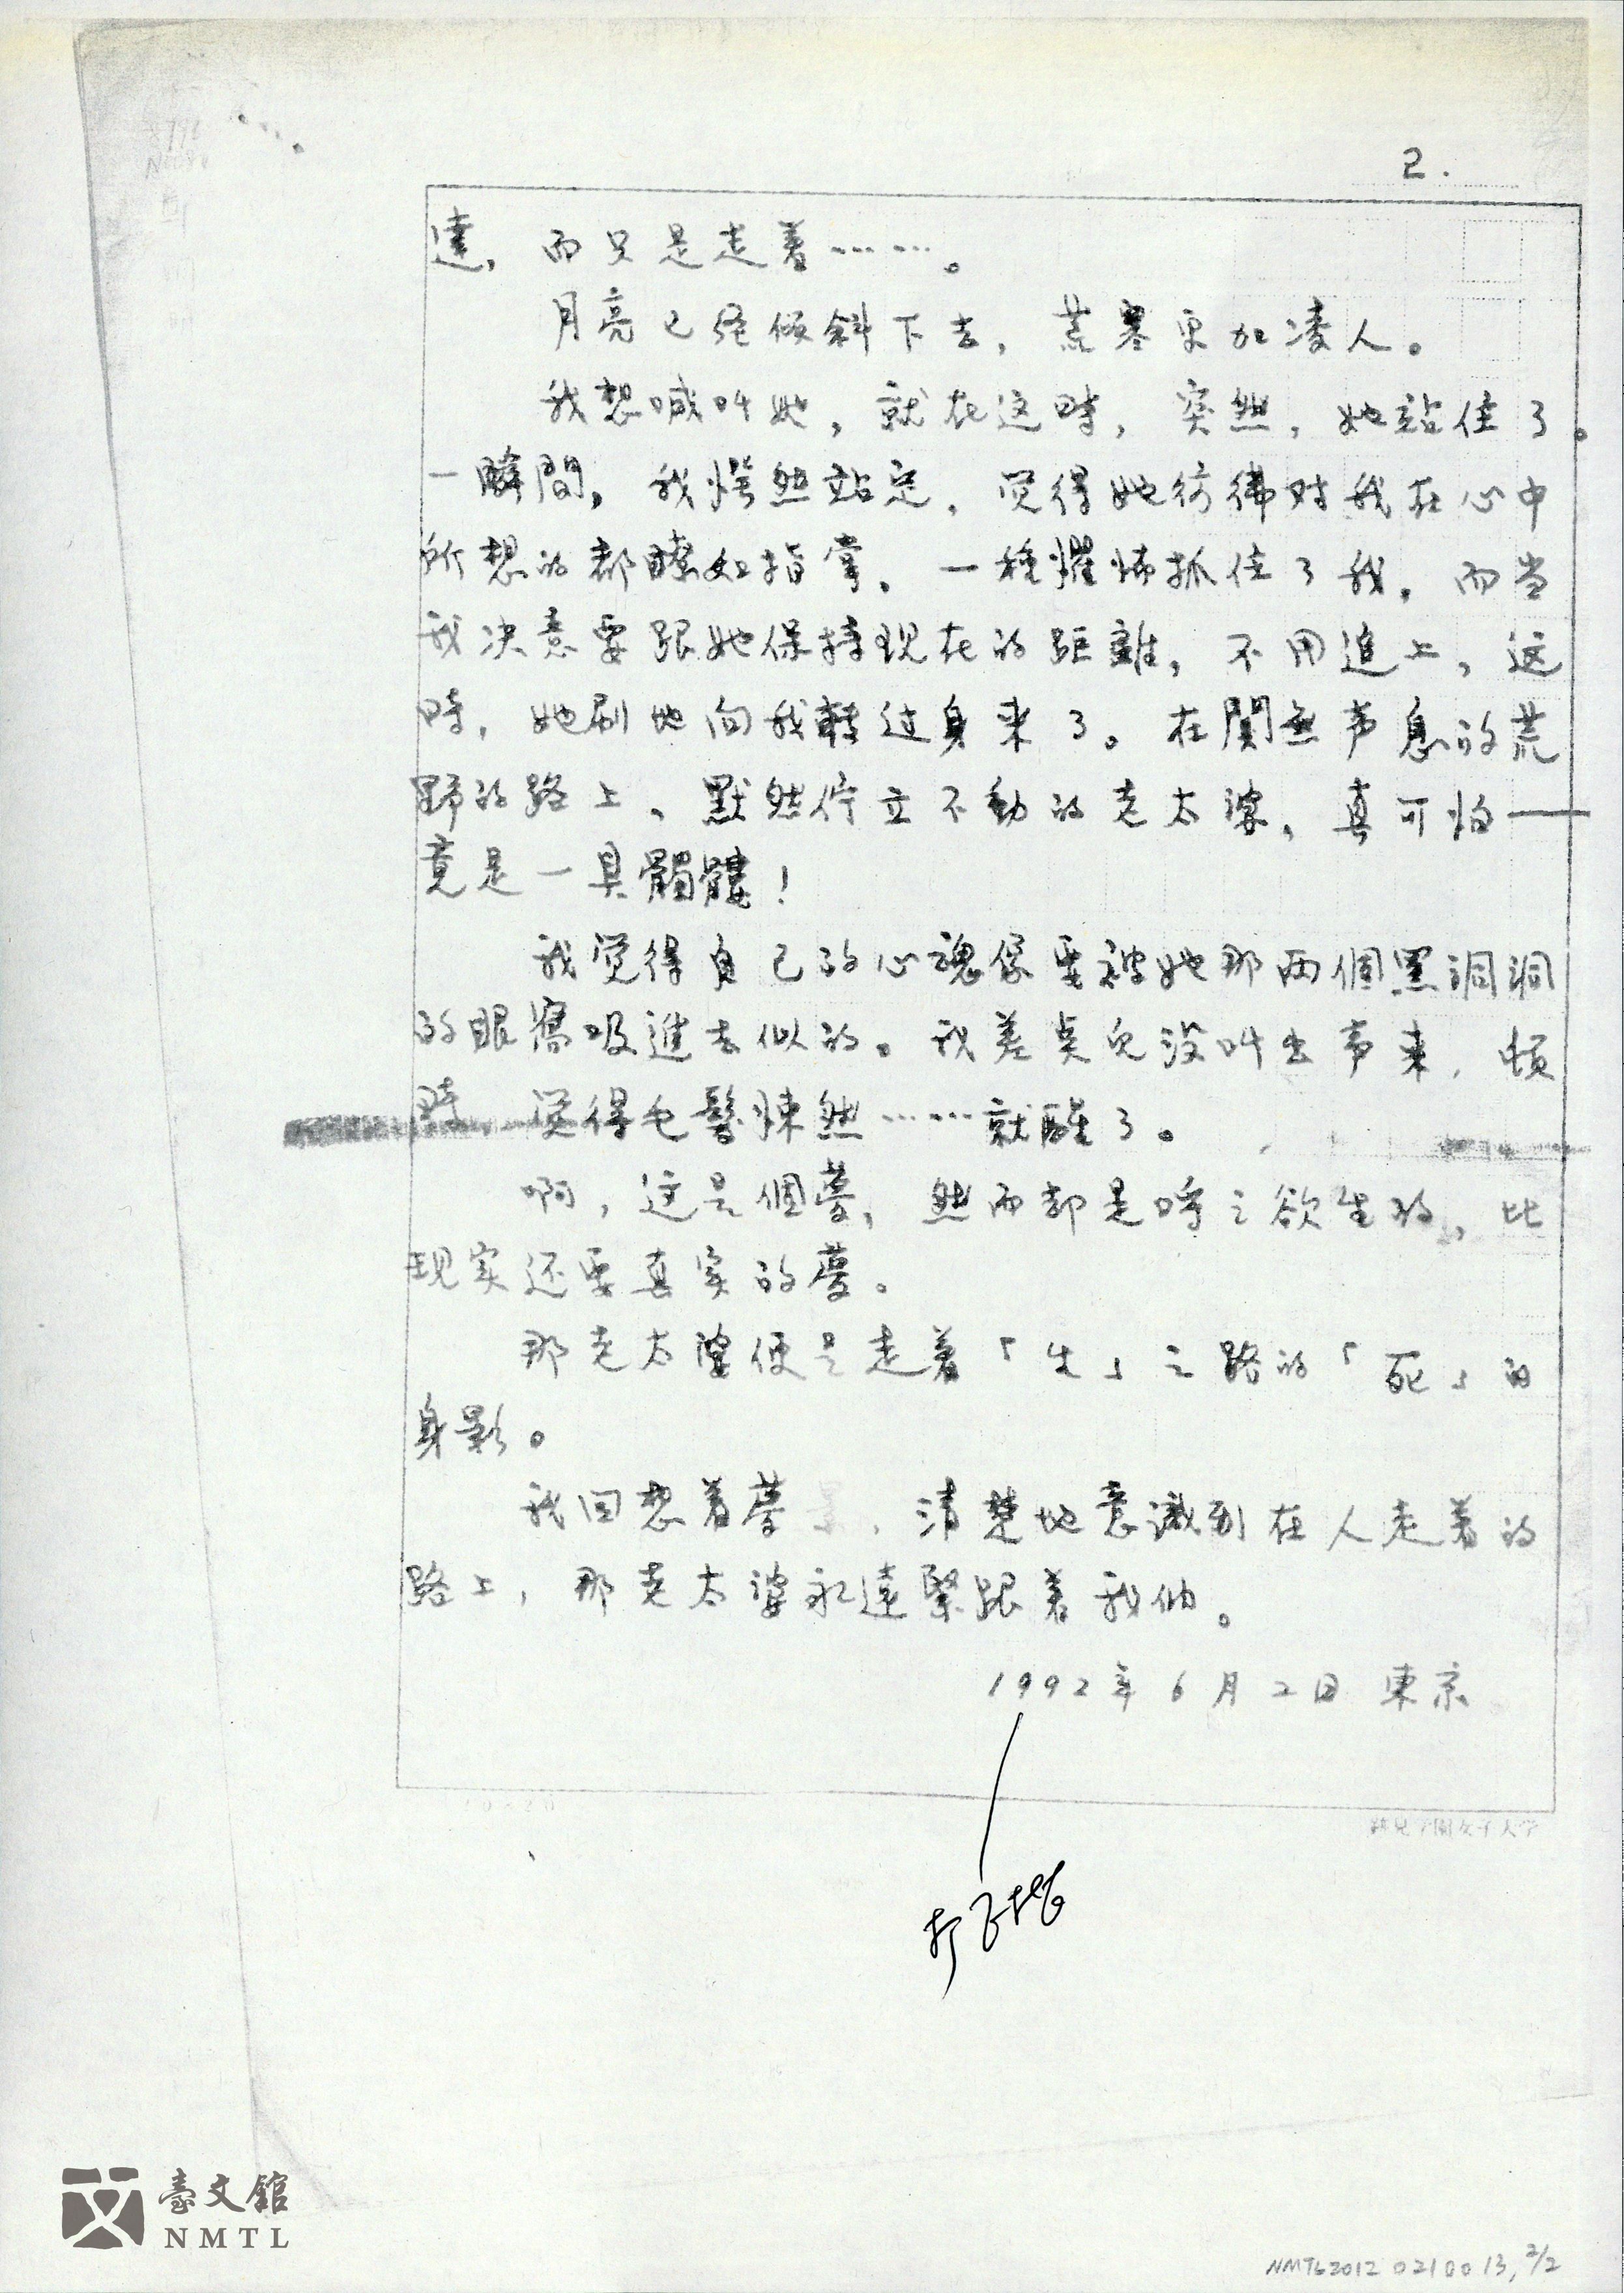 2.
達，而只是走着……。
月亮已经倾斜下去，荒寒更加凌人。
我想喊叫她，就在这時，突然，她站住了。
一瞬間，我愕然站定，觉得她彷彿对我在心中
所想的都瞭如指掌。一種懼怖抓住了我。而当
我决意要跟她保持现在的距離，不用追上，这
時，她刷地向我転过身来了。在闃無声息的荒
野的路上，默然佇立不動的老太婆，真可怕——
竟是一具髑髏！
我觉得自己的心魂像要被她那两個黑洞洞
的眼窩吸進去似的。我差点兒没叫出声来，頓
時，觉得毛髮悚然……就醒了。
啊，这是個夢，然而却是呼之欲生的，比
现实还要真实的夢。
那老太婆便是走着「生」之路的「死」的
身影。
我回想着夢景，清楚地意識到在人走着的
路上，那老太婆永遠緊跟着我们。
1992年6月2日 東京
20×20
跡見学園女子大学
臺文館
NMTL
NMTL2012 0210013, 2/2